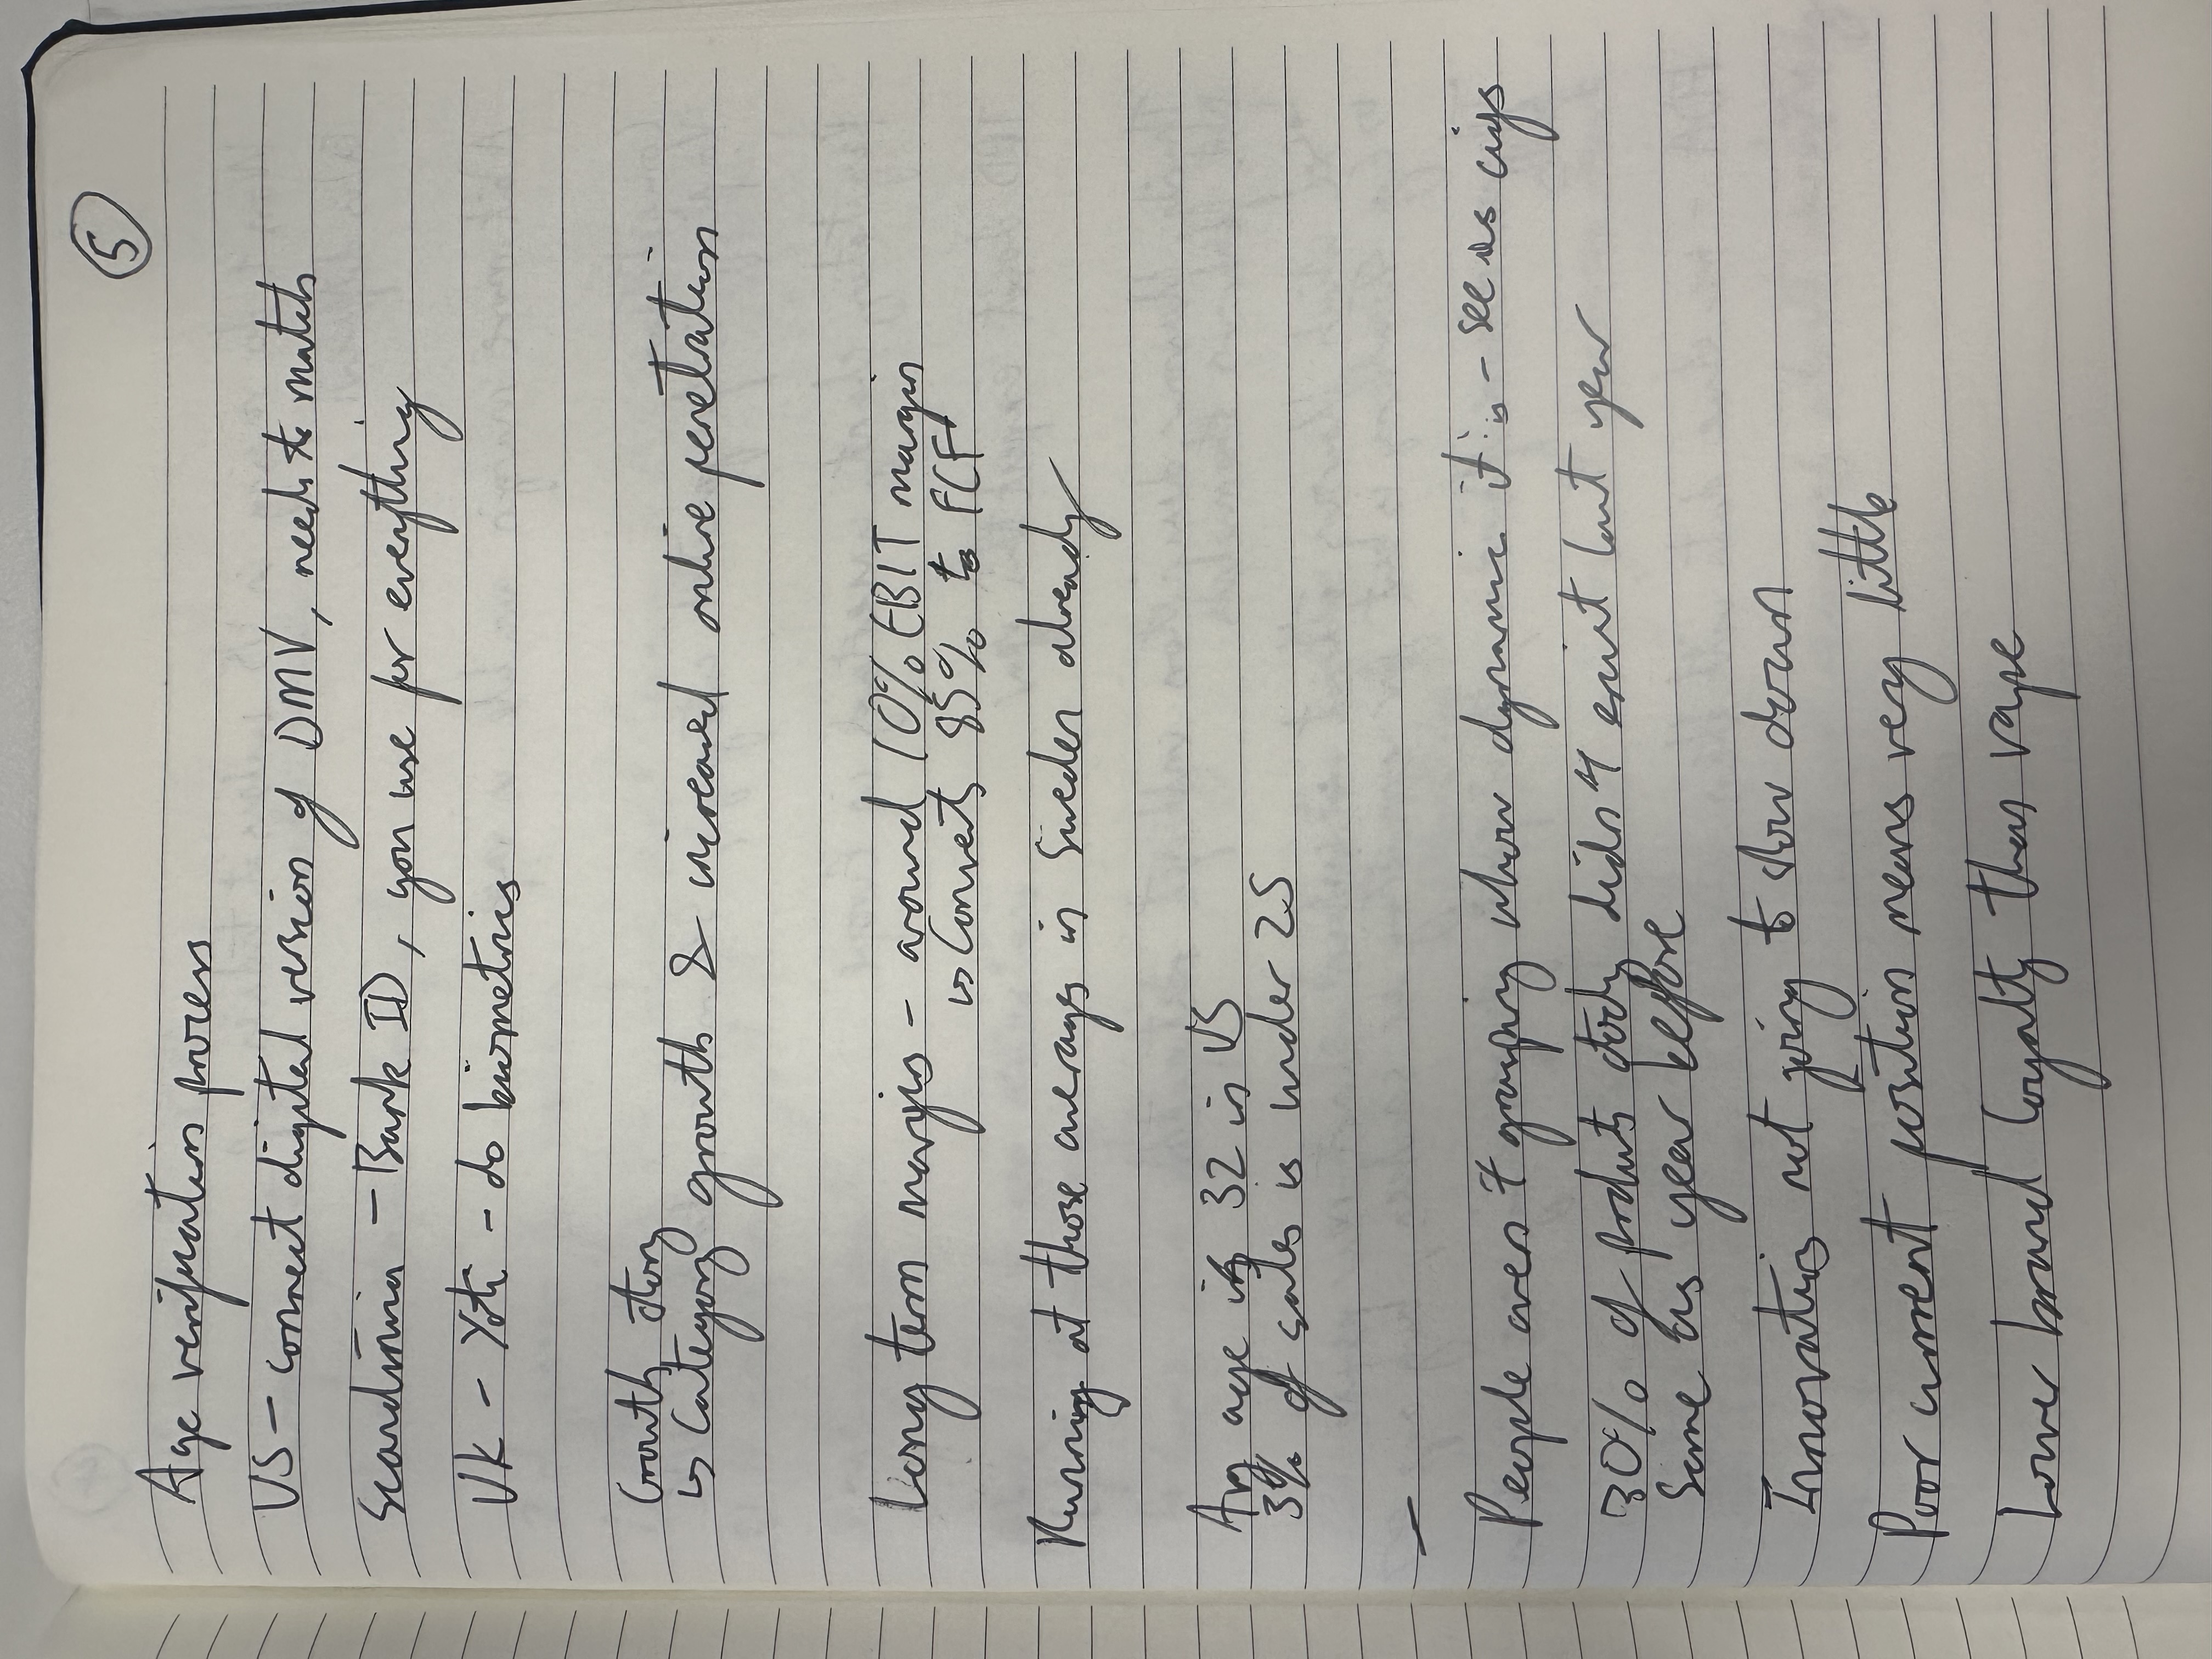 5
Age verification process
US - connect digital version of DMV, needs to match
Scandinavia - Bank ID, you use for everything
UK - Yoti - do biometrics
Growth story
↳ Category growth & increased online penetration
Long term margins - around 10% EBIT margin
↳ Converts 85% to FCF
Running at those averages in Sweden already
Avg age is 32 in US
3% of sales is under 25
–
People aren't grasping how dynamic it is - see as cigs
30% of products today didn't exist last year
Same as year before
Innovation not going to slow down
Poor current position means very little
Lower brand loyalty than vape